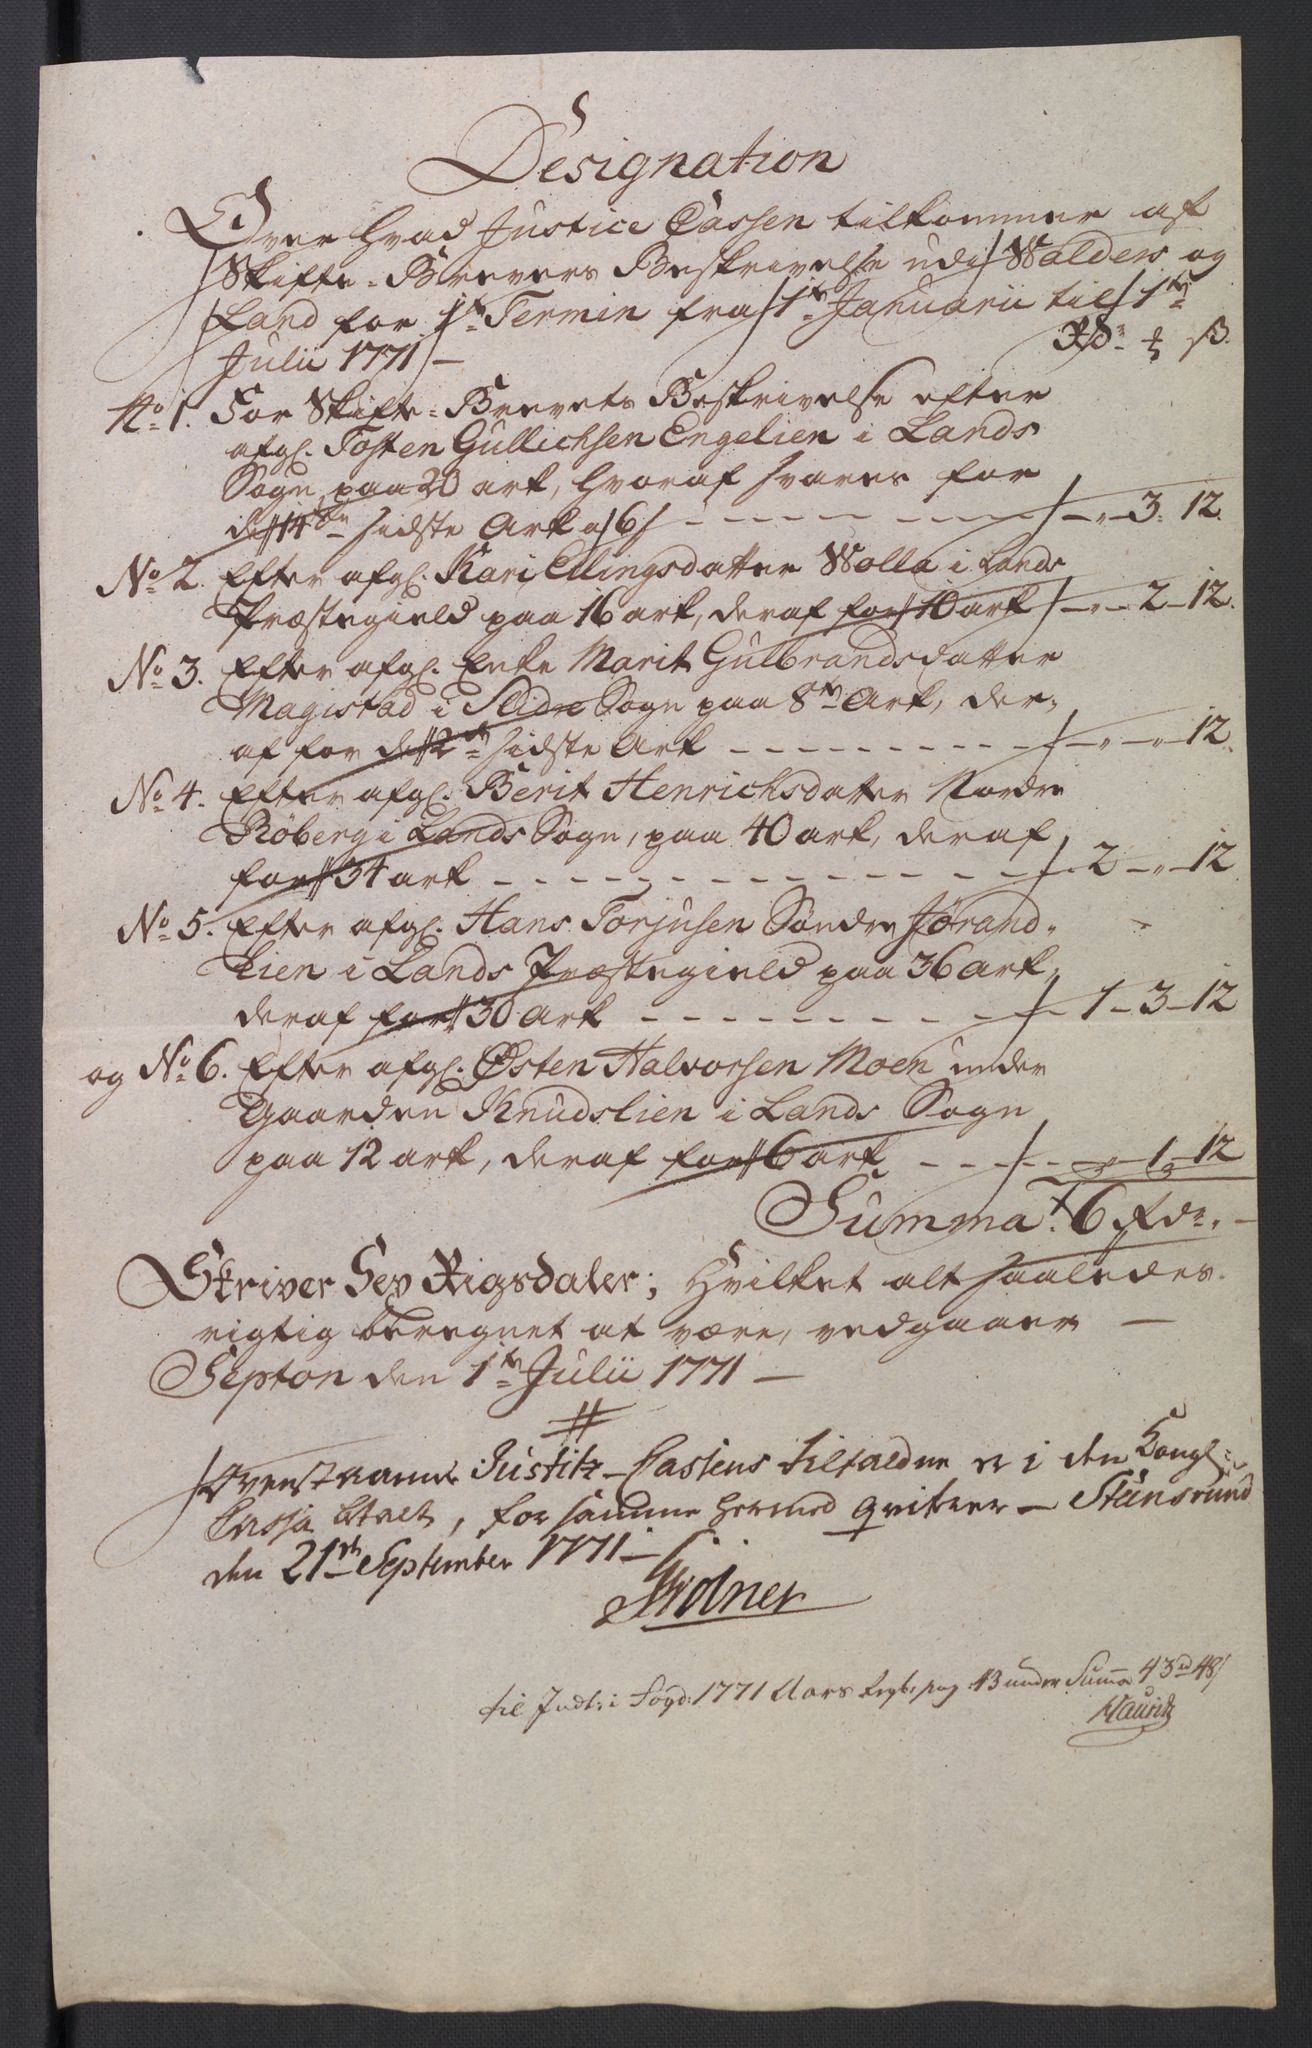 Designation
Over hvad Justice Cassen tilkommer af
Skifte-Brevers Beskrivelse udi Walders og
Land for 1te Termin fra 1te Januarii til 1te
Julii 1771 —
Rdr. ß.
No 1. For Skifte-Brevets Beskrivelse efter
afgl. Tosten Gullichsen Engelien i Lands
Sogn, paa 20 ark, hvoraf svares for
de 14ten sidste Ark a 6 ß — „ — 3. 12.
No 2. Efter afgl. Kari Ellingsdatter Wolla i Lands
Præstegield paa 16 ark, deraf for 10 ark — „ — 2 — 12.
No 3. Efter afgl. Enke Marit Gulbrandsdatter
Magistad i Slidre Sogn paa 8te Ark, der-
af for de 2de sidste Ark — „ — „ 12.
No 4. Efter afgl. Berit Henrichsdatter Nordre
Röberg i Lands Sogn, paa 40 ark, deraf
for 34 ark — 2 — „ — 12
No 5. Efter afgl. Hans Torjusen Söndre Jörand-
Lien i Lands Præstegield paa 36 Ark,
deraf for 30 Ark — 1 — 3 — 12
og No 6. Efter afgl. Østen Halvorsen Moen under
Gaarden Knudslien i Lands Sogn
paa 12 ark, deraf for 6 ark — „ — 1 — 12
Summa 6 Rdr. —
Skriver Sex Rigsdaler; hvilket alt saaledes
rigtig beregnet at være, vedgaaer —
Septon den 1te Julii 1771 —
Ovenstaaende Justitz-Casens tilfaldne er i den Kongl:
Cassa , for samme hermed qvitterer — Stensrund
den 21de September 1771 —
Wolner
til Indt: i Fogd: 1771 Aars Regb: pag: 43 under Summa 43 rd 48 ß
Mauritz